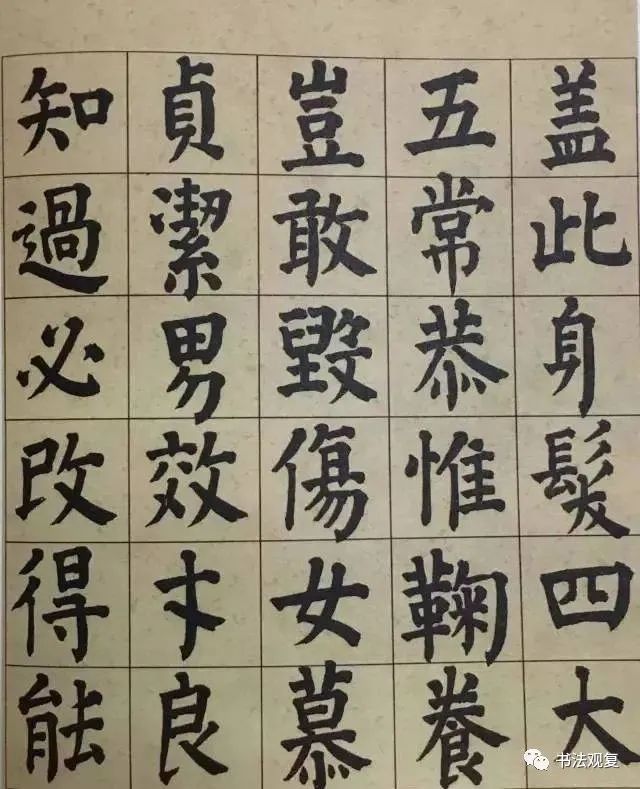 盖此身髮四大
五常恭惟鞠養
豈敢毀傷女慕
貞潔男效才良
知過必改得能
书法观复